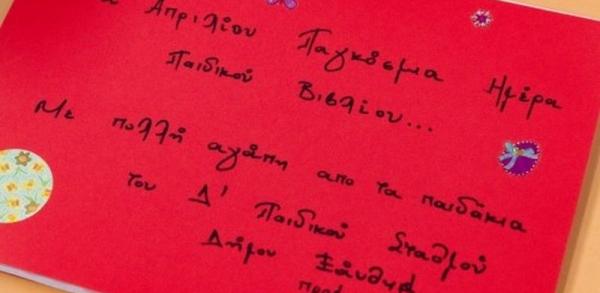 Απριλίου Παγκόσμια Ημέρα
Παιδικού Βιβλίου...
Με πολλή αγάπη απο τα παιδάκια
του Δ' Παιδικού Σταθμού
Δήμου Ξάνθης